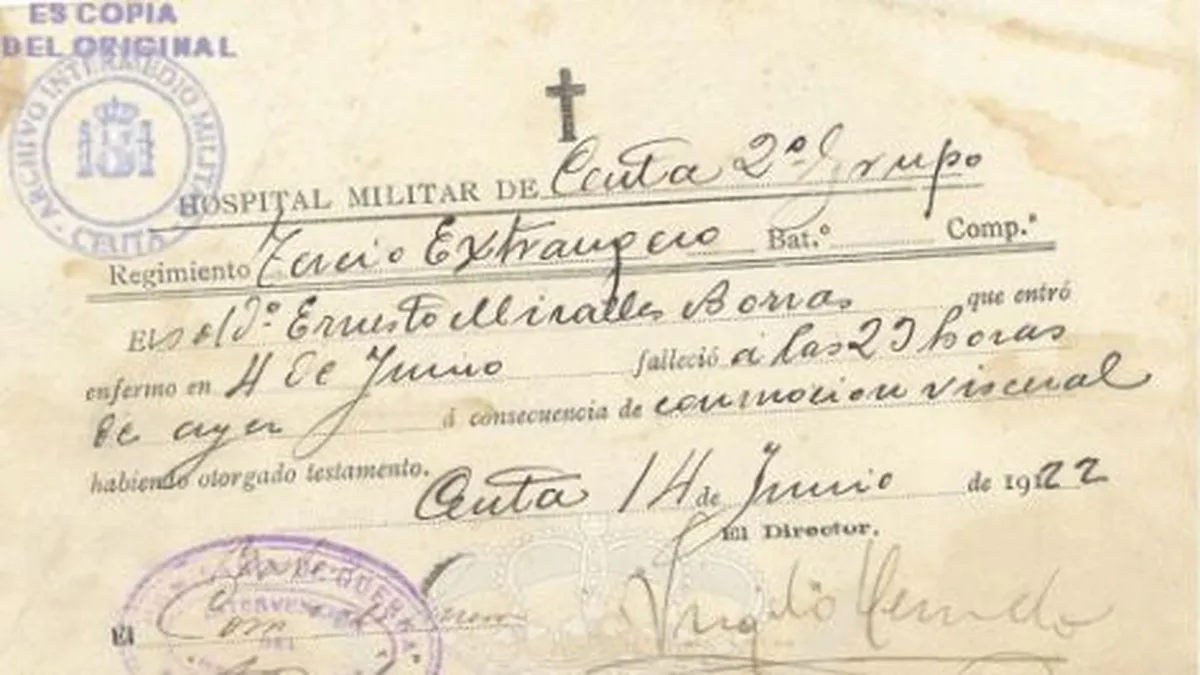 ES COPIA
DEL ORIGINAL
ARCHIVO INTERMEDIO MILITAR · CEUTA
HOSPITAL MILITAR DE Ceuta 2º Grupo
Regimiento Tercio Extrangero Bat.º Comp.ª
El sold.º Ernesto Miralles Borras que entró
enfermo en 4 de Junio falleció á las 23 horas
de ayer á consecuencia de conmocion visceral
habiendo otorgado testamento.
Ceuta 14 de Junio de 1922
El Director.
El